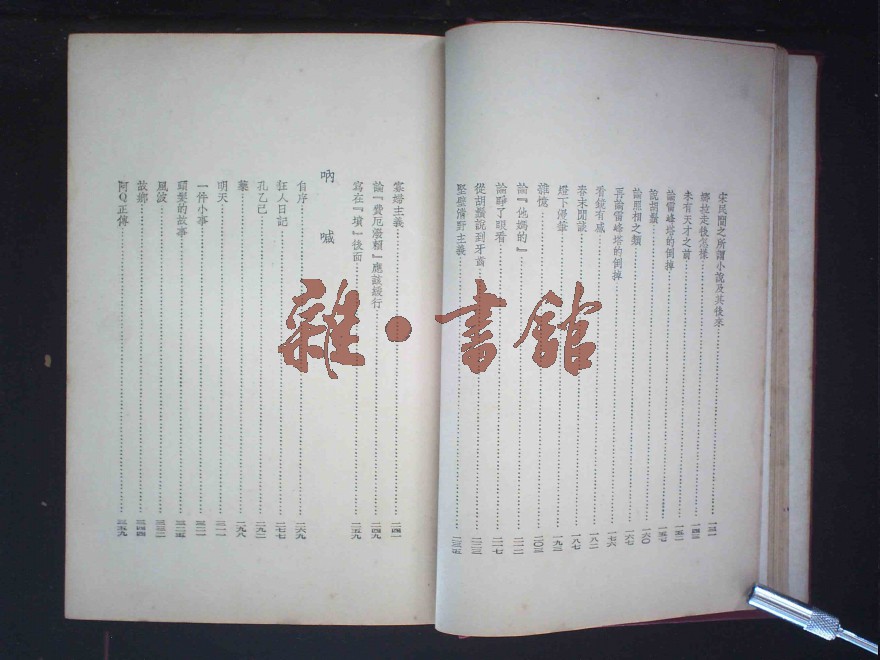 宋民間之所謂小說及其後來……一三一
娜拉走後怎樣……一四三
未有天才之前……一五一
論雷峰塔的倒掉……一五七
說胡鬚……一六〇
論照相之類……一六七
再論雷峰塔的倒掉……一七六
看鏡有感……一八二
春末閒談……一八七
燈下漫筆……一九三
雜憶……二〇三
論『他媽的』……二一二
論睜了眼看……二一七
從胡鬚說到牙齒……二二三
堅壁清野主義……二三五
寡婦主義……二四一
論『費厄潑賴』應該緩行……二四九
寫在『墳』後面……二五九
吶喊
自序……二六九
狂人日記……二七七
孔乙己……二九二
藥……二九八
明天……三一一
一件小事……三二一
頭髮的故事……三二五
風波……三三二
故鄉……三四四
阿Q正傳……三五九
雜·書館